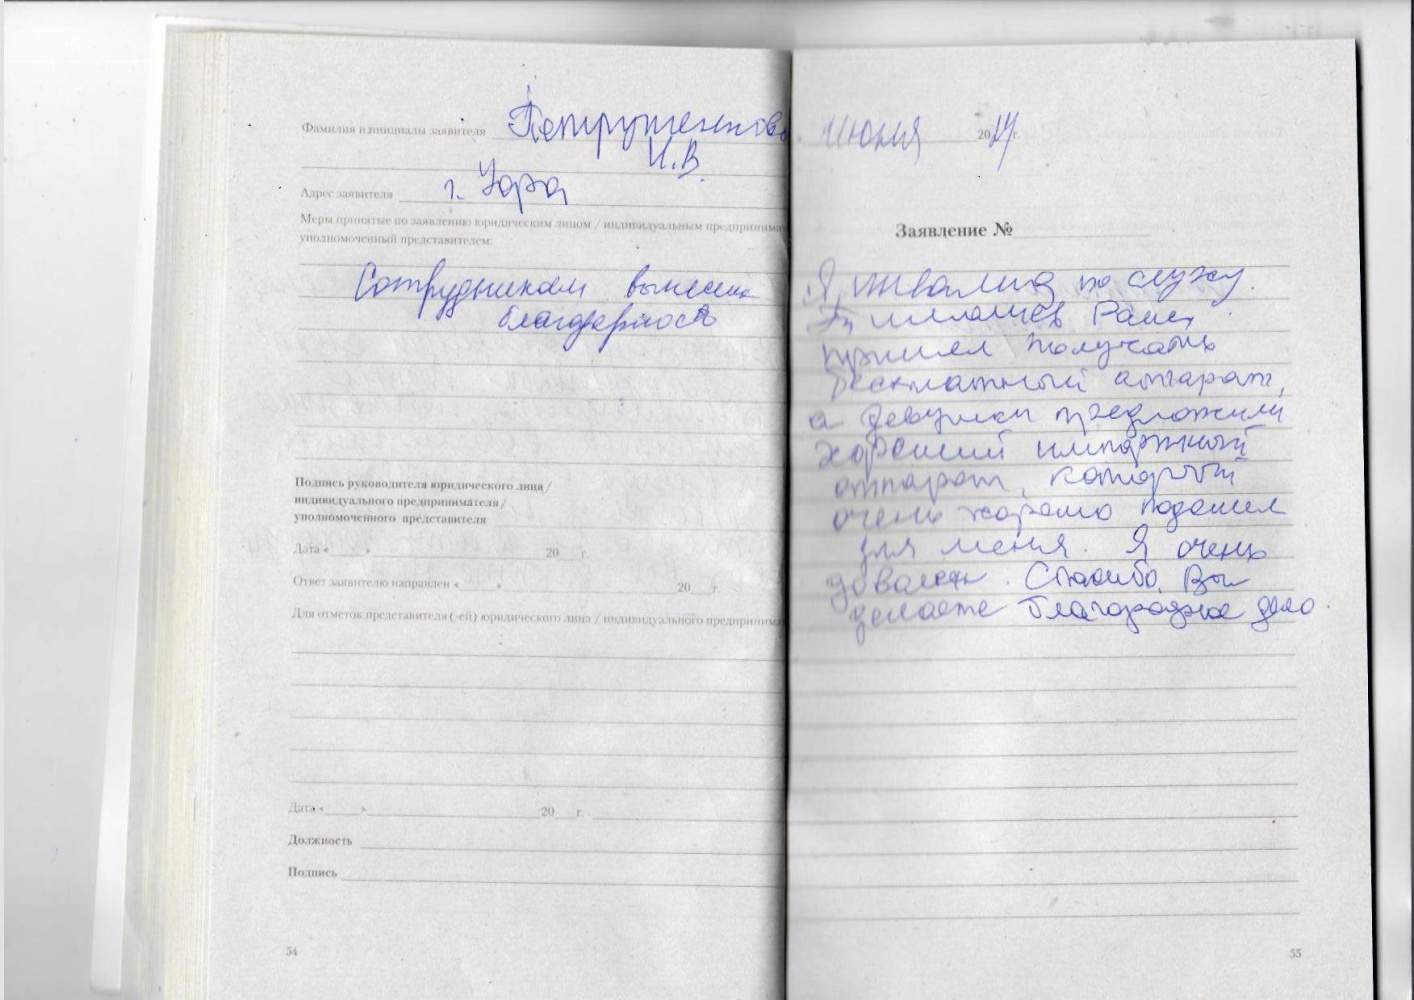 Фамилия и инициалы заявителя Петрушенков
И.В.
Адрес заявителя г. Уфа
Меры принятые по заявлению юридическим лицом / индивидуальным предпринима
уполномоченный представителем:
Сотрудникам вынесена
благодарность
Подпись руководителя юридического лица /
индивидуального предпринимателя /
уполномоченного представителя
Дата «____»____20__г.
Ответ заявителю направлен «____»____20__г.
Для отметок представителя (-ей) юридического лица / индивидуального предпринима
Дата «____»____20__г.
Должность
Подпись
54
июня 20 г.
Заявление №
Я, инвалид по слуху.
Раис
пришел получать
бесплатный аппарат,
а девушки предложили
хороший импортный
аппарат, который
очень хорошо подошел
для меня. Я очень
доволен. Спасибо, Вы
делаете благородное дело.
55